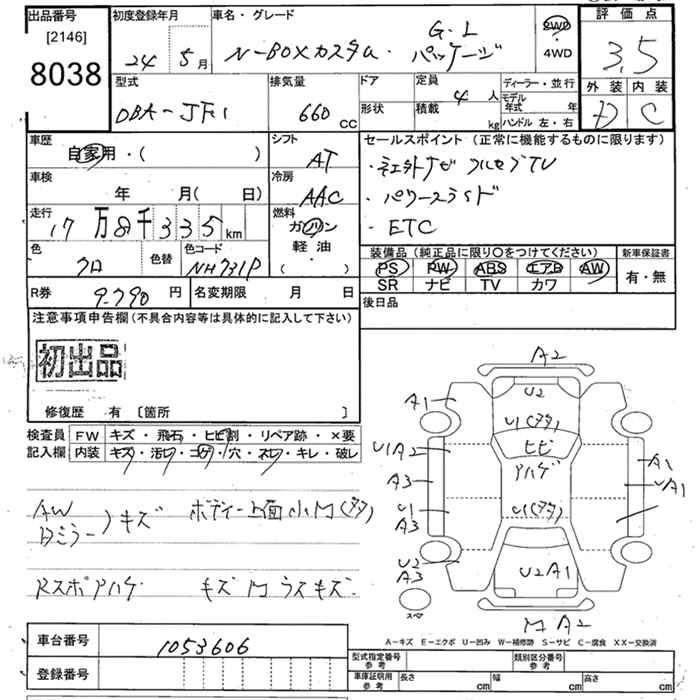 出品番号
[2146]
8038
初度登録年月
24年 5月
車名・グレード
N-BOXカスタム・G・Lパッケージ
2WD・4WD
評価点
3.5
外装 内装
D C
型式
DBA-JF1
排気量
660 CC
ドア
形状
定員
4 人
積載
kg
ディーラー・並行
モデル年式 年
ハンドル 左・右
車歴
自家用・( )
シフト
AT
車検
年 月( 日)
冷房
AAC
走行
17万8千335 km
燃料
ガソリン
軽油
・( )
色
クロ
色替
色コード
NH731P
R券
9.790 円
名変期限 月 日
セールスポイント(正常に機能するものに限ります)
・ネエ外ナビ フルセグTV
・パワースライド
・ETC
装備品(純正品に限り○をつけてください)
PS PW ABS エアB AW
SR ナビ TV カワ
新車保証書
有・無
後日品
注意事項申告欄(不具合内容等は具体的に記入して下さい)
初出品
修復歴 有 [箇所 ]
検査員記入欄
FW キズ・飛石・ヒビ割・リペア跡・×要
内装 キズ・汚レ・コゲ・穴・ネレ・キレ・破レ
AW
Dミラー)キズ ボディー上面小凹(多)
Rスポアハゲ キズ凹ラスキズ.
A2
U2
A1
U1(多)
ヒビ
アハゲ
U1A2
A3
U1
A3
U1(多)
A1
UA1
U2
A3
U2A1
スペア
MA2
A-キズ E-エクボ U-凹み W-補修跡 S-サビ C-腐食 XX-交換済
車台番号
1053606
登録番号
型式指定番号
参考
類別区分番号
参考
車庫証明用
参考
長さ cm 幅 cm 高さ cm